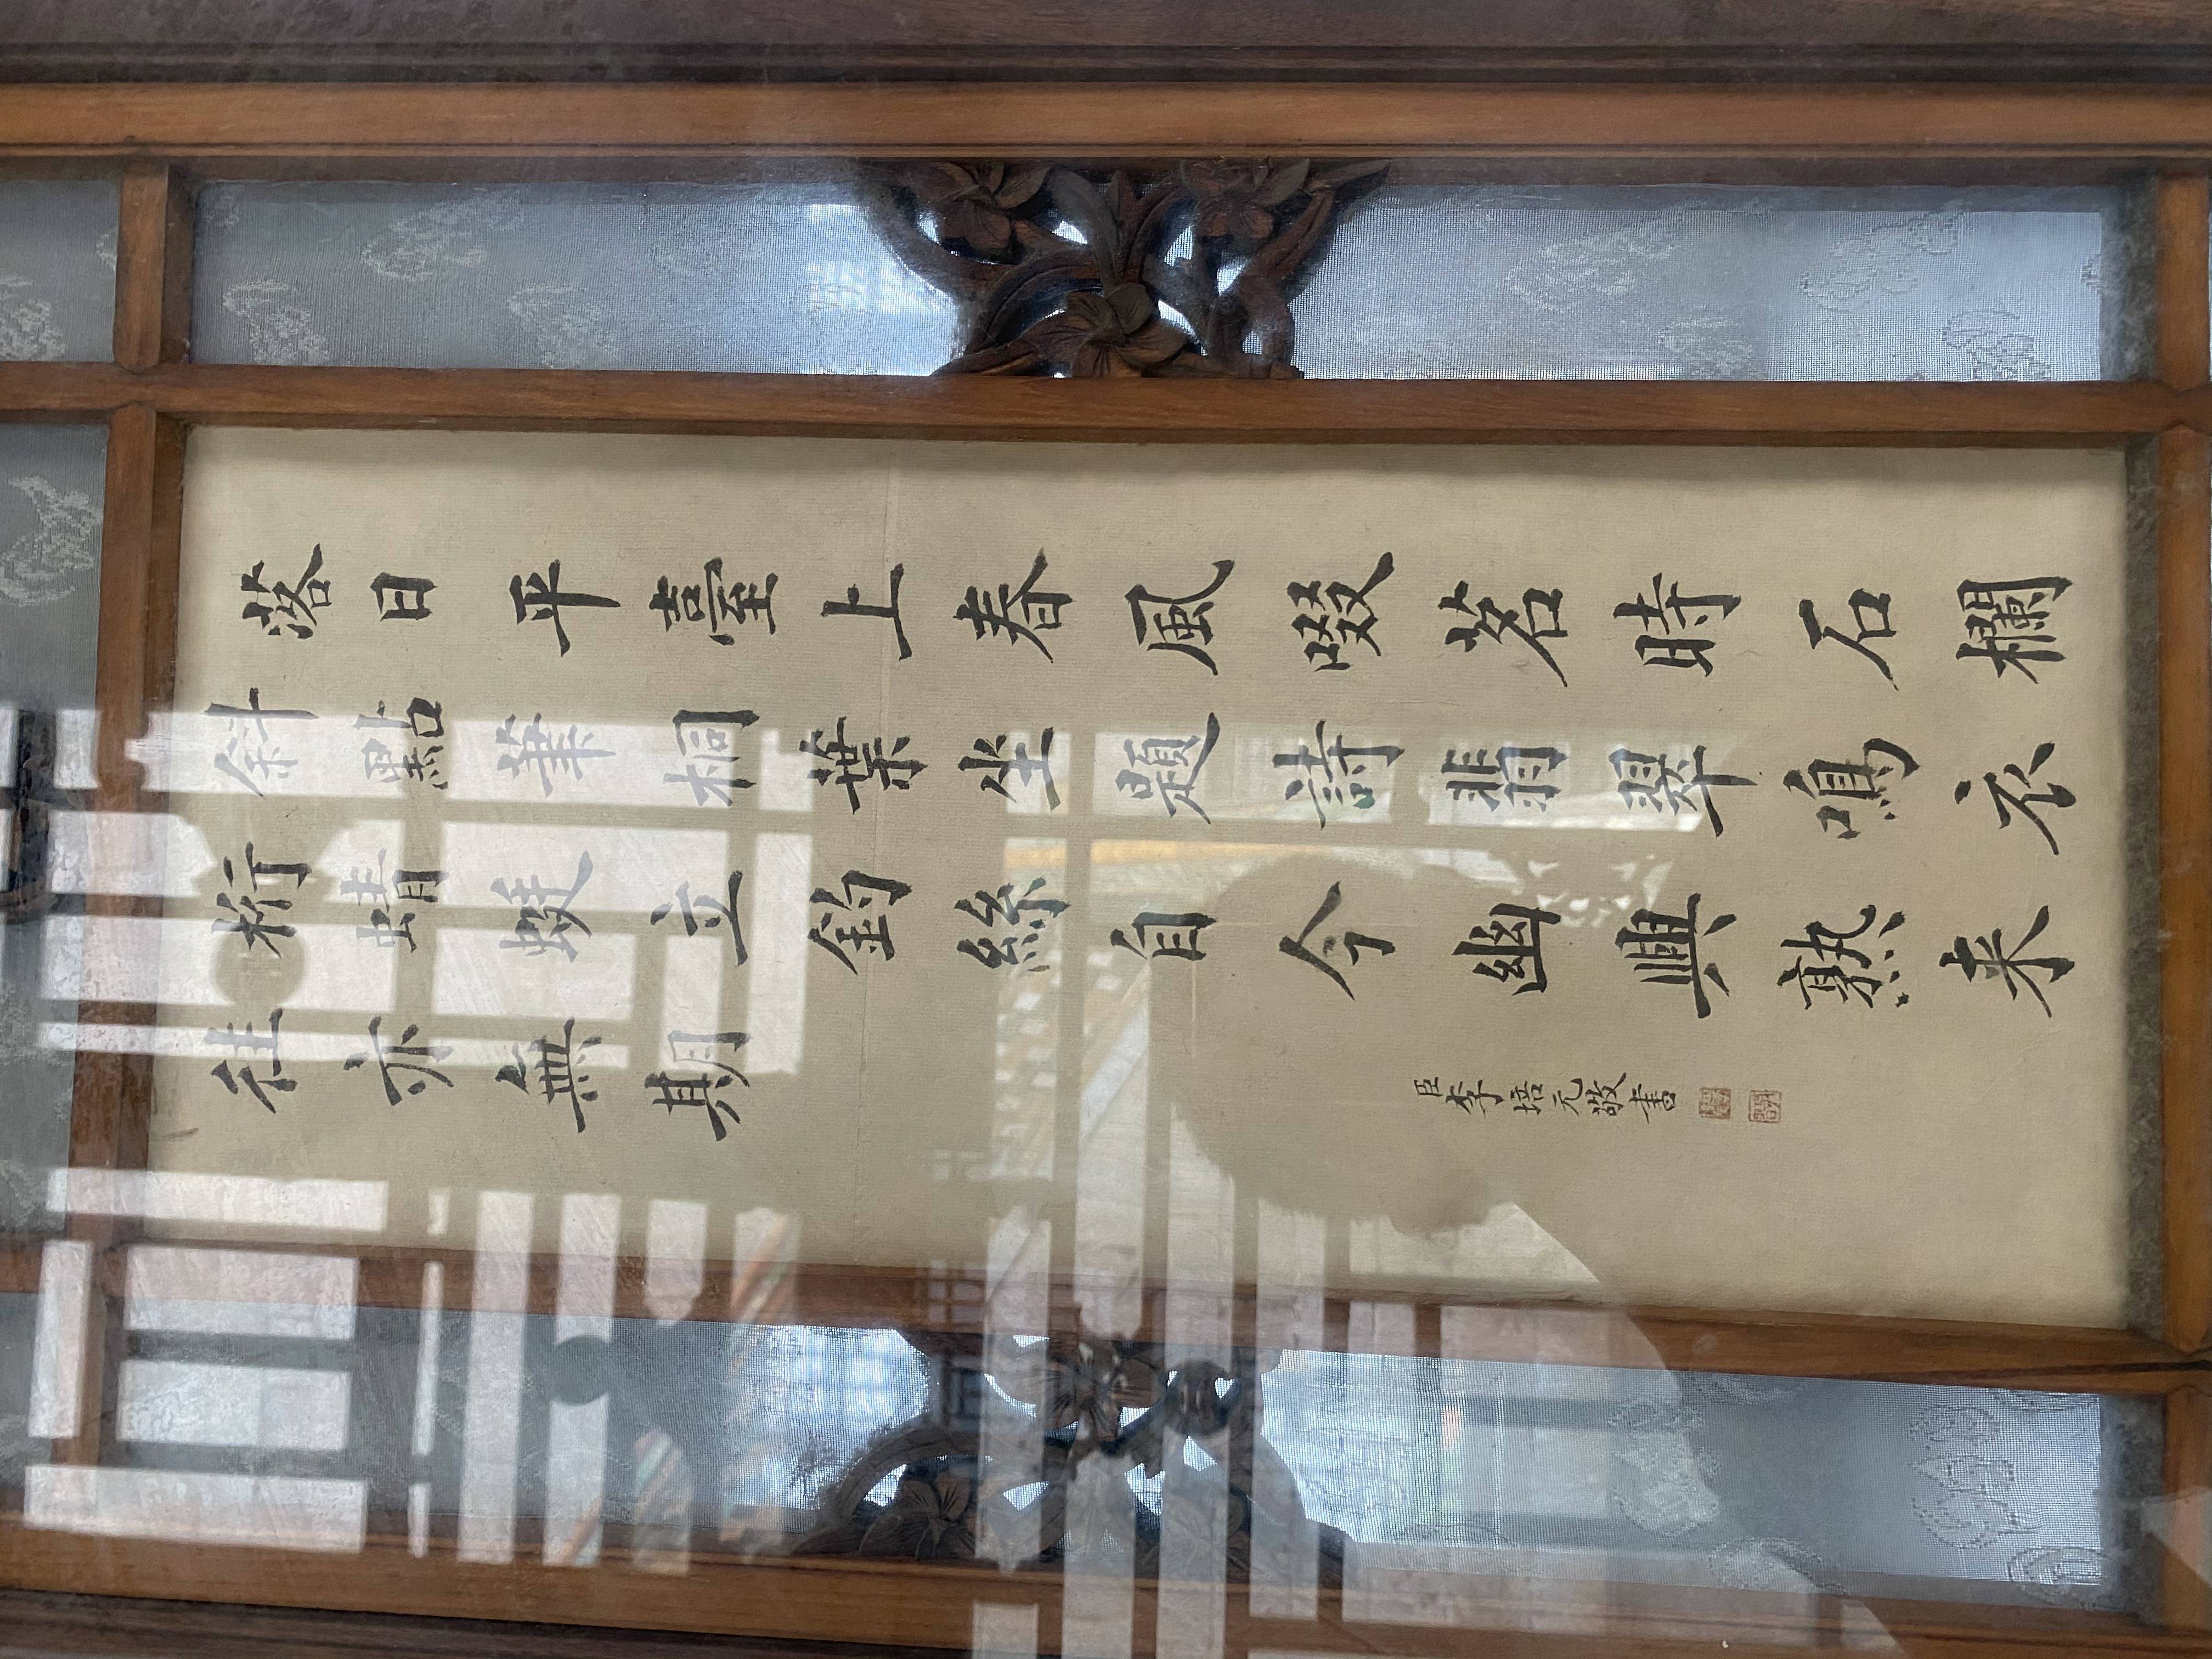 落日平臺上春風啜茗時石欄
斜點筆桐葉坐題詩翡翠鳴衣
桁蜻蜓立釣絲自今幽興熟来
往亦無期
臣李培元敬書